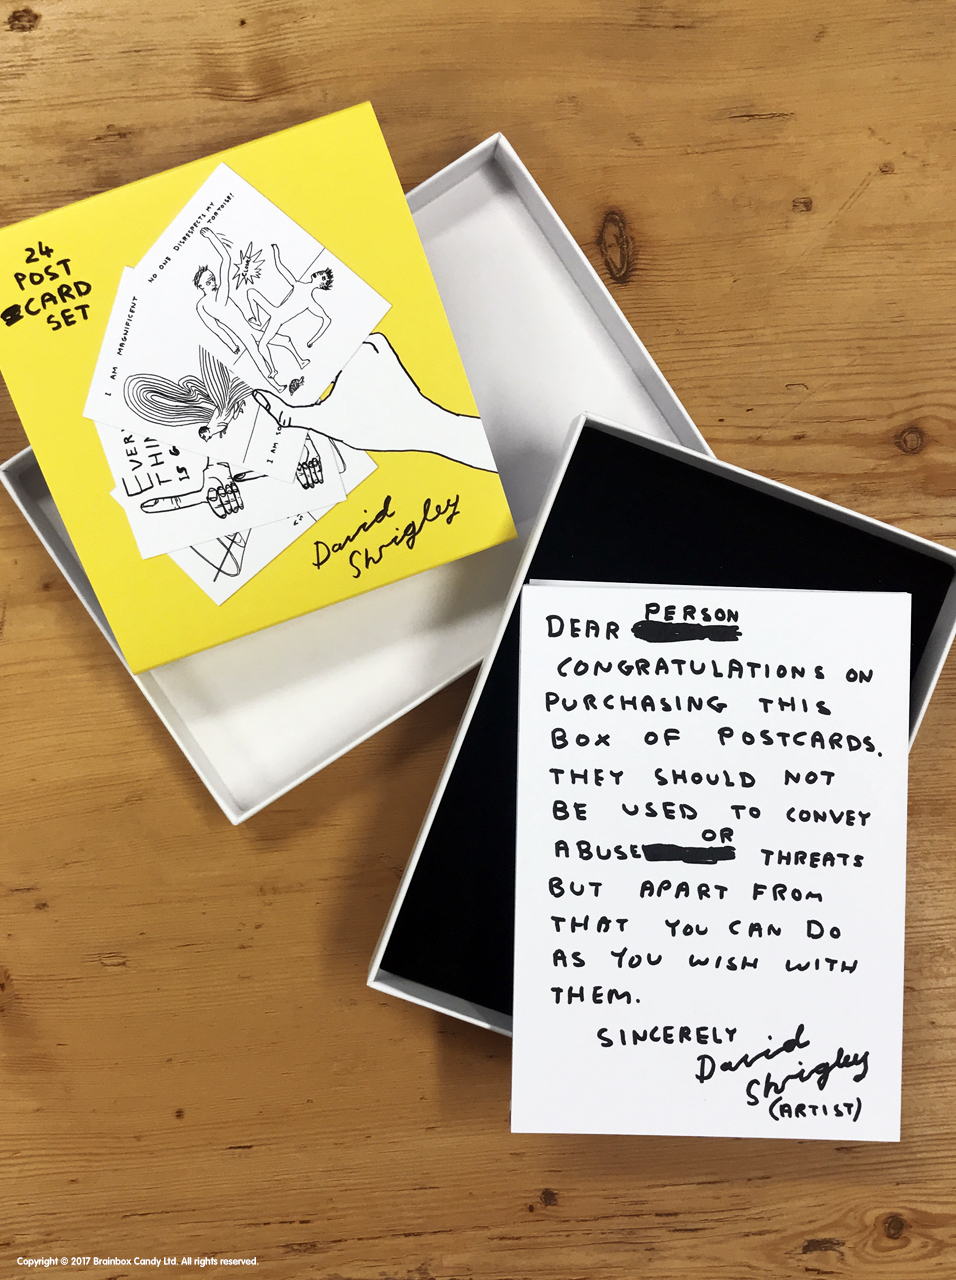 24
POST
CARD
SET
NO ONE DISRESPECTS MY
TORTOISE!
I AM MAGNIFICENT
EVER
THIN
IS
I AM SO
David
Shrigley
DEAR PERSON
CONGRATULATIONS ON
PURCHASING THIS
BOX OF POSTCARDS.
THEY SHOULD NOT
BE USED TO CONVEY
ABUSE OR THREATS
BUT APART FROM
THAT YOU CAN DO
AS YOU WISH WITH
THEM.
SINCERELY
David
Shrigley
(ARTIST)
Copyright © 2017 Brainbox Candy Ltd. All rights reserved.